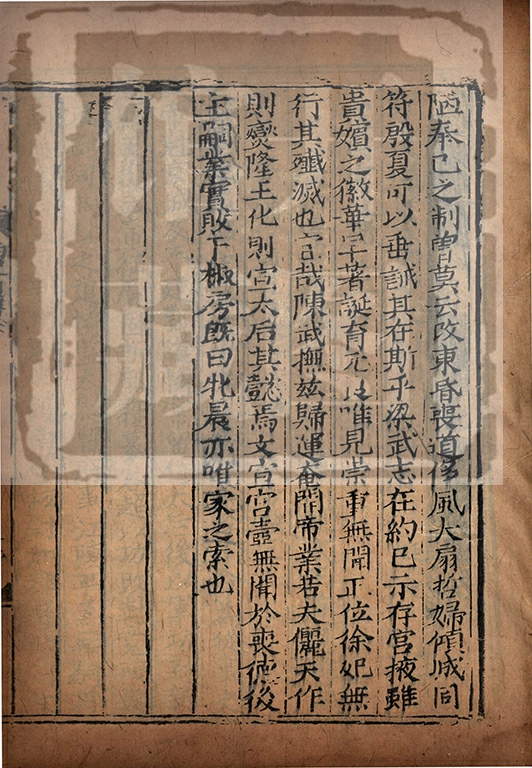 陋奉己之制曾莫云改東昏喪道侈風大扇哲婦傾城同
符殷夏可以垂誡其在斯乎梁武志在約己示存宮掖雖
貴嬪之徽華早著誕育元良唯見崇重無聞正位徐妃無
行其殲滅也宜哉陳武撫茲歸運奄開帝業若夫儷天作
則燮隆王化則宣太后其懿焉文宣宮壼無聞於喪德後
主嗣業實敗于椒房既曰牝晨亦唯家之索也